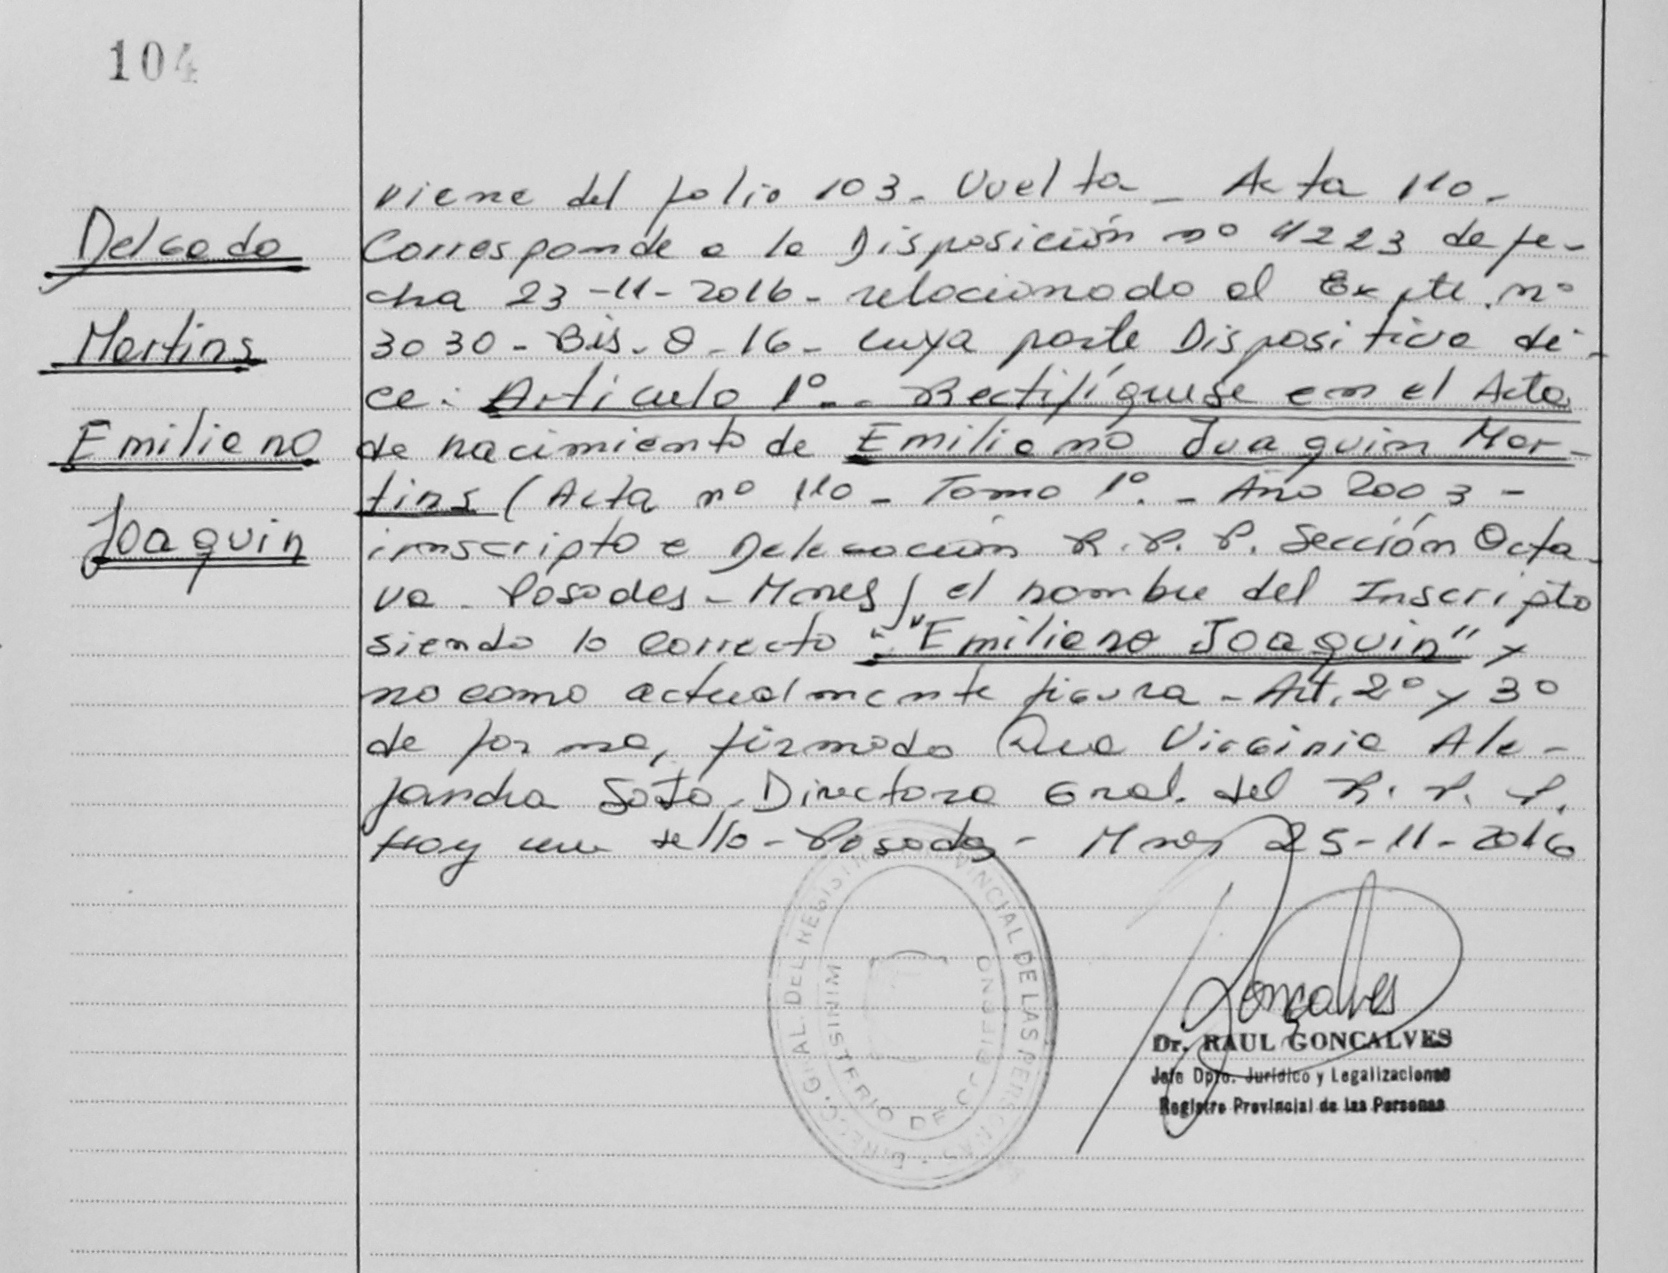 104
Delgado
Martins
Emiliano
Joaquin
viene del folio 103. Vuelta - Acta 110.
Corresponde a la Disposición nº 4223 de fe-
cha 23-11-2016- relacionado al Expte. nº
3030-Bis-8-16- cuya parte Dispositiva di-
ce: Artículo 1º.- Rectifíquese en el Acta
de nacimiento de Emiliano Juaquin Mar-
tins (Acta nº 110- Tomo 1º.- Año 2003-
inscripto e Delegación R.P.P. Sección Octa-
va- Posadas-Mnes) el nombre del Inscripto
siendo lo correcto "Emiliano Joaquin" y
no como actualmente figura - Art. 2º y 3º
de forma, firmado Dra Virginia Ale-
jandra Soto, Directora Gral. del R.P.P.
Hay un sello - Posadas - Mnes 25-11-2016
DIRECC. GRAL. DEL REGISTRO PROVINCIAL DE LAS PERSONAS
MINISTERIO DE GOBIERNO
Goncalves
Dr. RAUL GONCALVES
Jefe Dpto. Jurídico y Legalizaciones
Registro Provincial de las Personas